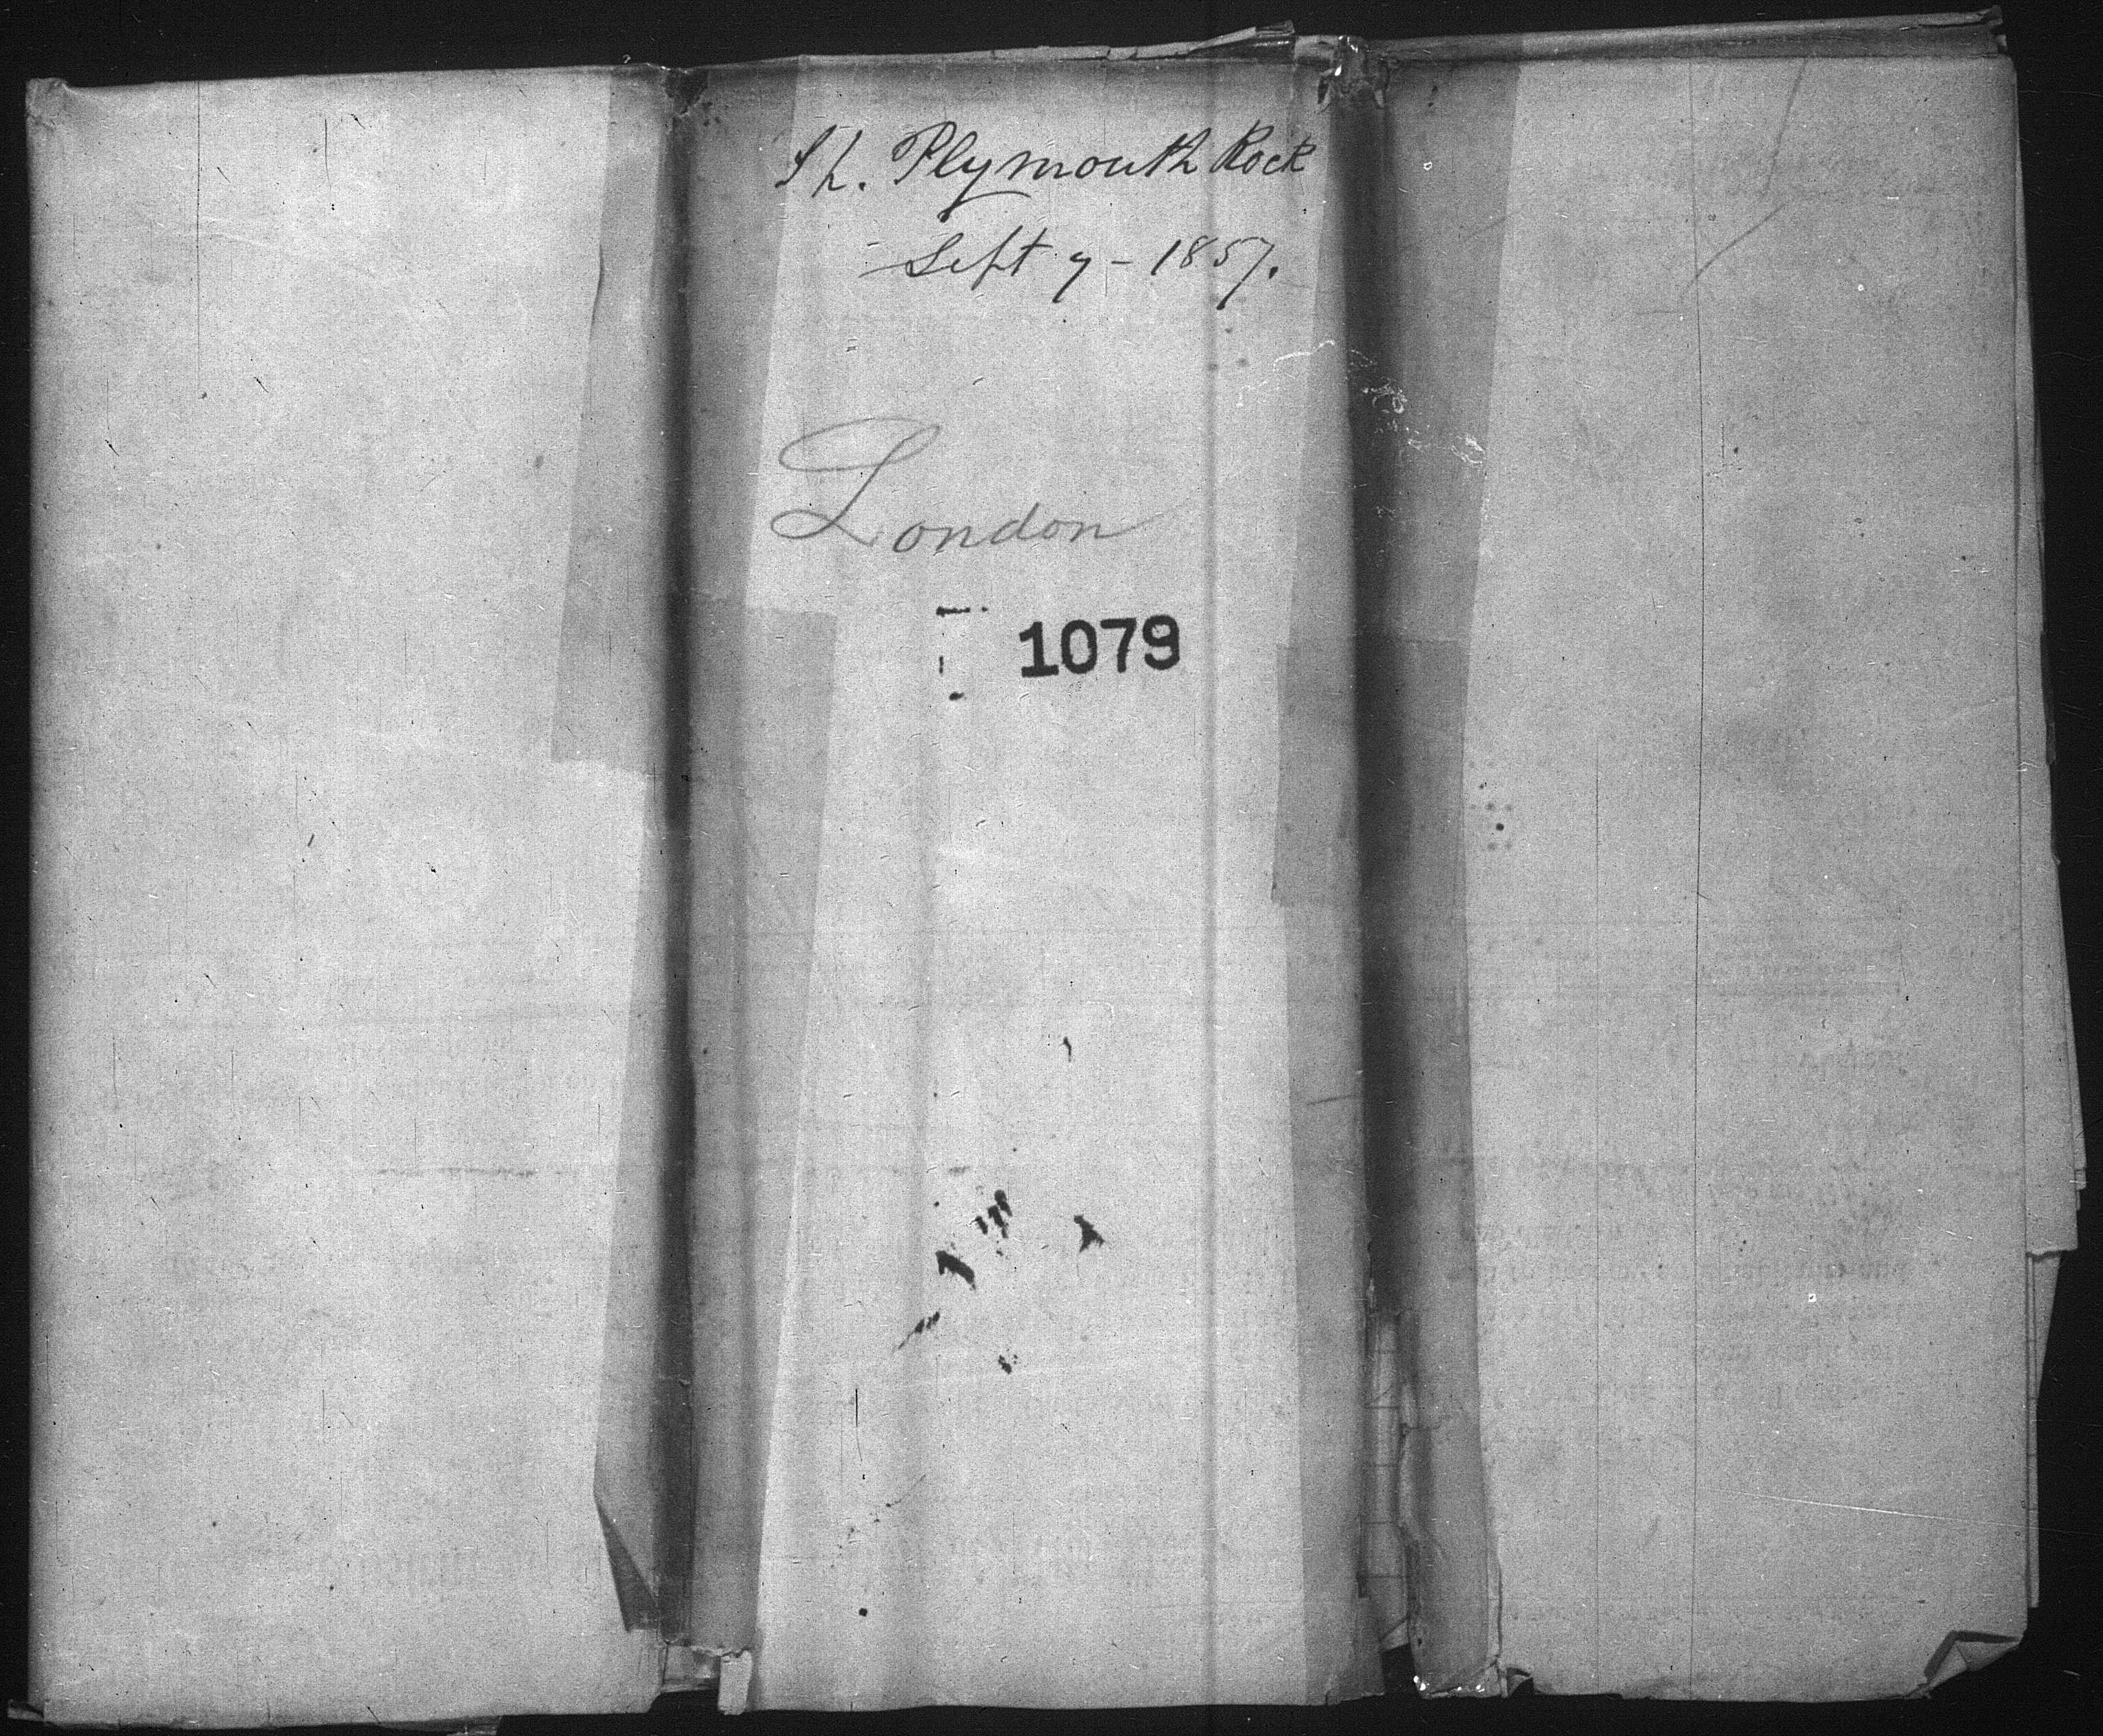 Sh. Plymouth Rock
Sept 7 - 1857.
London
1079